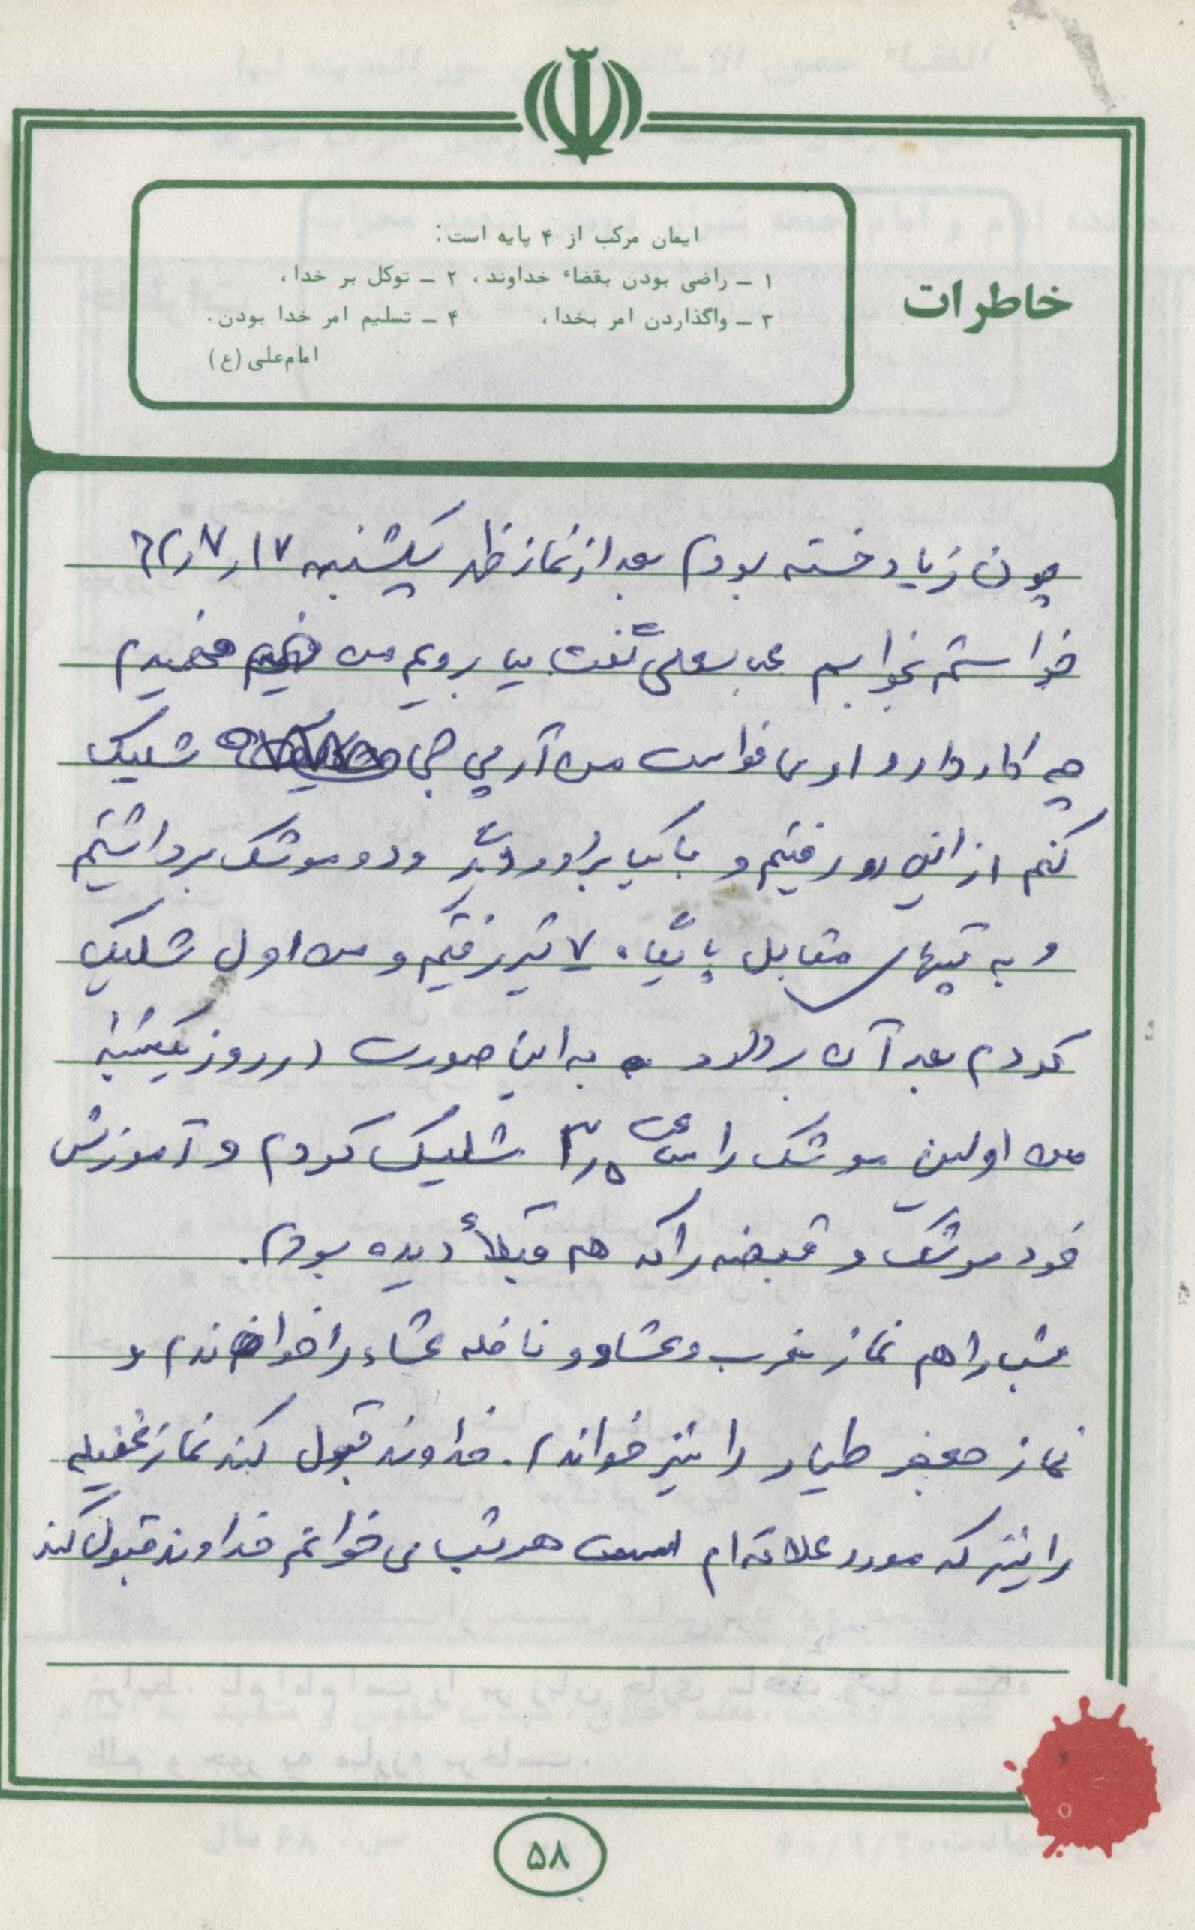 خاطرات
ایمان مرکب از ۴ پایه است:
۱ ـ راضی بودن بقضاء خداوند، ۲ ـ توکل بر خدا،
۳ ـ واگذاردن امر بخدا، ۴ ـ تسلیم امر خدا بودن.
امام‌علی (ع)
چون زیاد خسته بودم بعد از نماز ظهر یکشنبه ۱۷ر۷ر۶۲
خواستم بخوابم عباسعلی گفت بیا برویم من فهمیدم
چه کار دارد او می خواست من آر پی جی شلیک
کنم از این رو رفتیم و با یک برادر دیگر و دو موشک برداشتیم
و به تپه‍های مقابل پایگاه ۷ تیر رفتیم و من اول شلیک
کردم بعد آن برادر به این صورت در روز یکشنبه
من اولین موشک را ساعت ۳٫۵ شلیک کردم و آموزش
خود موشک و قبضه را که هم قبلاً دیده بودم.
شب را هم نماز مغرب و عشاء و نافله عشاء را خواندم و
نماز جعفر طیار را نیز خواندم. خداوند قبول کند نماز غفیله
را نیز که مورد علاقه ام است هر شب می خوانم خداوند قبول کند
۵۸